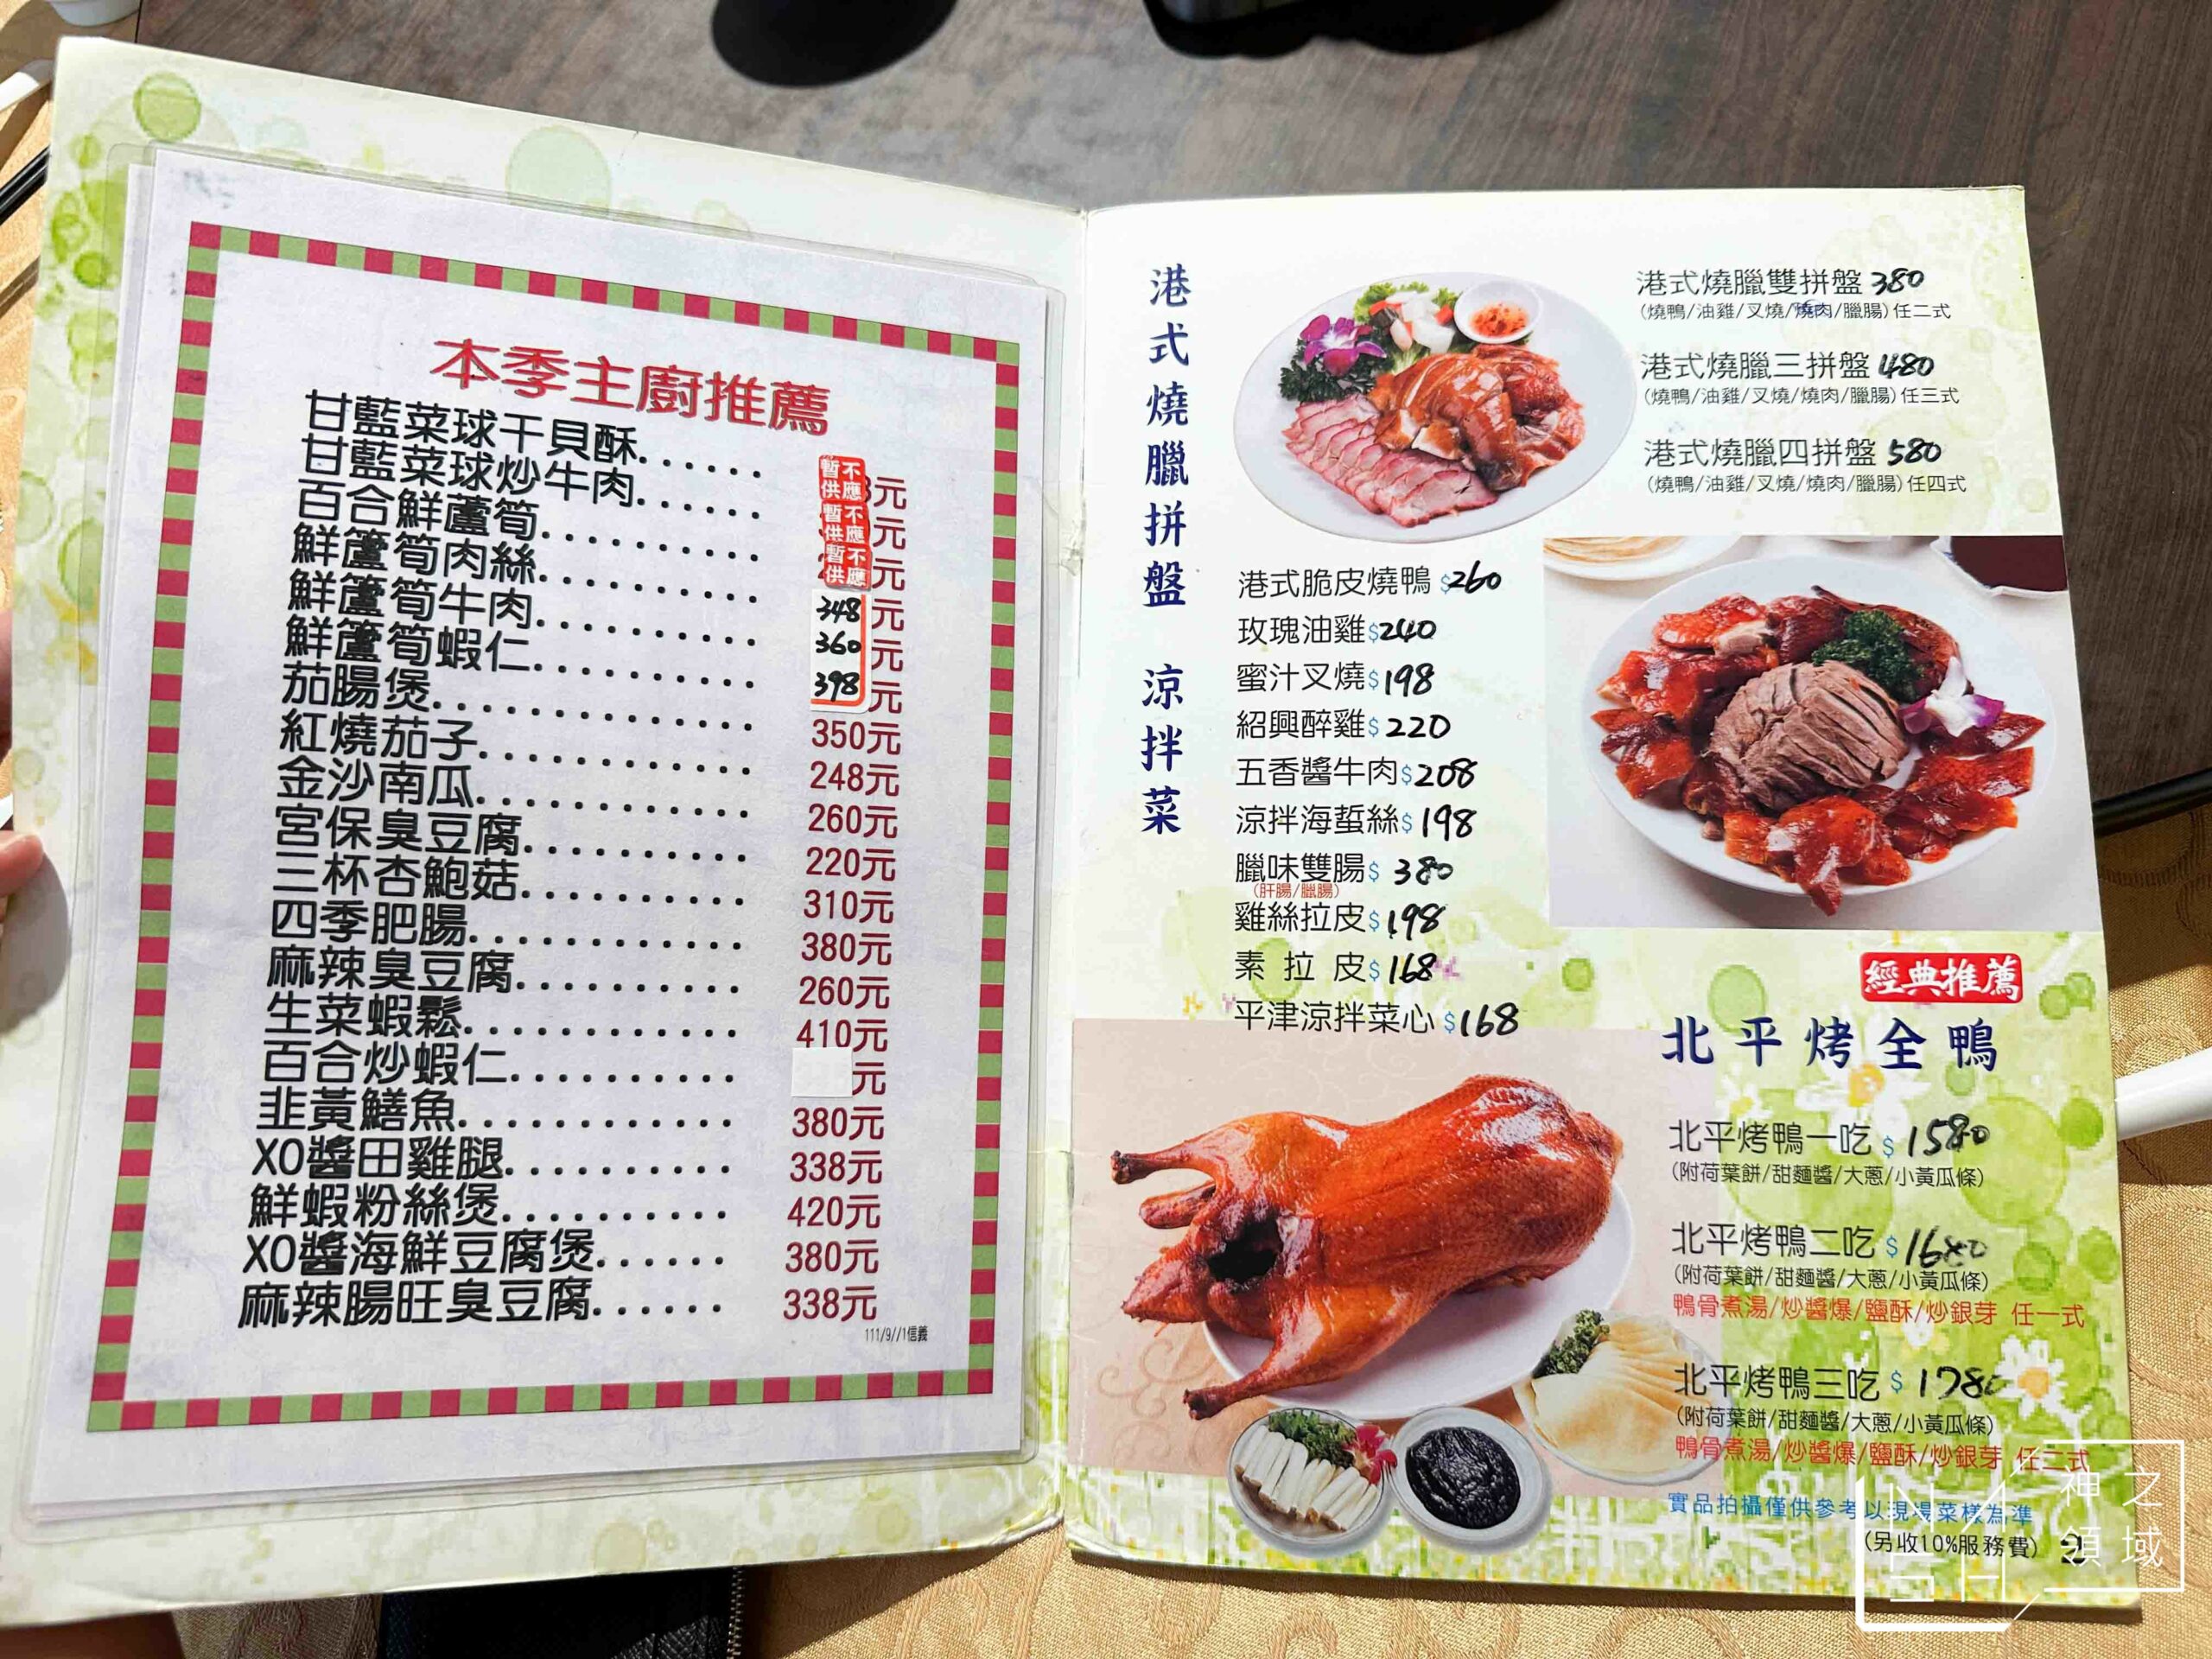 本季主廚推薦
甘藍菜球干貝酥...... 暫不供應 8元
甘藍菜球炒牛肉...... 暫不供應 元
百合鮮蘆筍.......... 暫不供應 元
鮮籚筍肉絲.......... 348元
鮮籚筍牛肉.......... 360元
鮮籚筍蝦仁.......... 398元
茄腸煲............. 350元
紅燒茄子............ 248元
金沙南瓜............ 260元
宮保臭豆腐.......... 220元
三杯杏鮑菇.......... 310元
四季肥腸............ 380元
麻辣臭豆腐.......... 260元
生菜蝦鬆............ 410元
百合炒蝦仁.......... 元
韭黃鱔魚............ 380元
XO醬田雞腿.......... 338元
鮮蝦粉絲煲.......... 420元
XO醬海鮮豆腐煲...... 380元
麻辣腸旺臭豆腐...... 338元
111/9//1信義
港式燒臘拼盤 涼拌菜
港式燒臘雙拼盤 380
(燒鴨/油雞/叉燒/燒肉/臘腸)任二式
港式燒臘三拼盤 480
(燒鴨/油雞/叉燒/燒肉/臘腸)任三式
港式燒臘四拼盤 580
(燒鴨/油雞/叉燒/燒肉/臘腸)任四式
港式脆皮燒鴨 $260
玫瑰油雞$240
蜜汁叉燒$198
紹興醉雞$220
五香醬牛肉$208
涼拌海蜇絲$198
臘味雙腸$380
(肝腸/臘腸)
雞絲拉皮$198
素拉皮$168
平津涼拌菜心$168
經典推薦
北平烤全鴨
北平烤鴨一吃 $1580
(附荷葉餅/甜麵醬/大蔥/小黃瓜條)
北平烤鴨二吃 $1680
(附荷葉餅/甜麵醬/大蔥/小黃瓜條)
鴨骨煮湯/炒醬爆/鹽酥/炒銀芽 任一式
北平烤鴨三吃 $1780
(附荷葉餅/甜麵醬/大蔥/小黃瓜條)
鴨骨煮湯/炒醬爆/鹽酥/炒銀芽 任二式
實品拍攝僅供參考以現場菜樣為準
(另收10%服務費) 2
神之領域